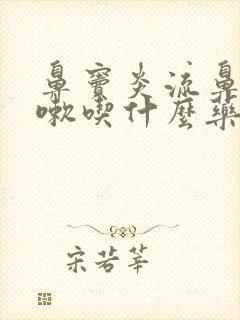 鼻窦炎流鼻
嗽喫什麼藥
宋若莘